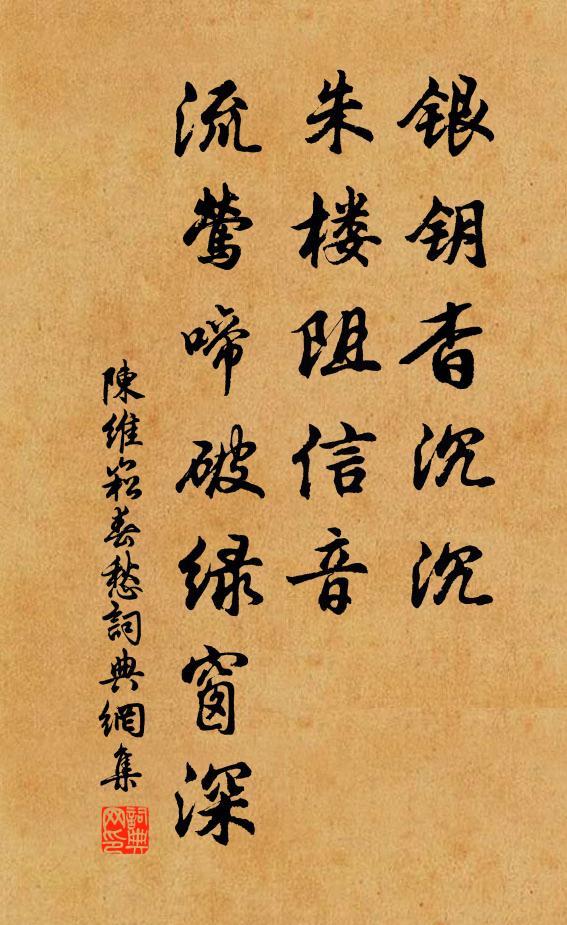 银钥杳沉沉
朱楼阻信音
流莺啼破绿窗深
陳維崧春愁詞典網集
詞典网印